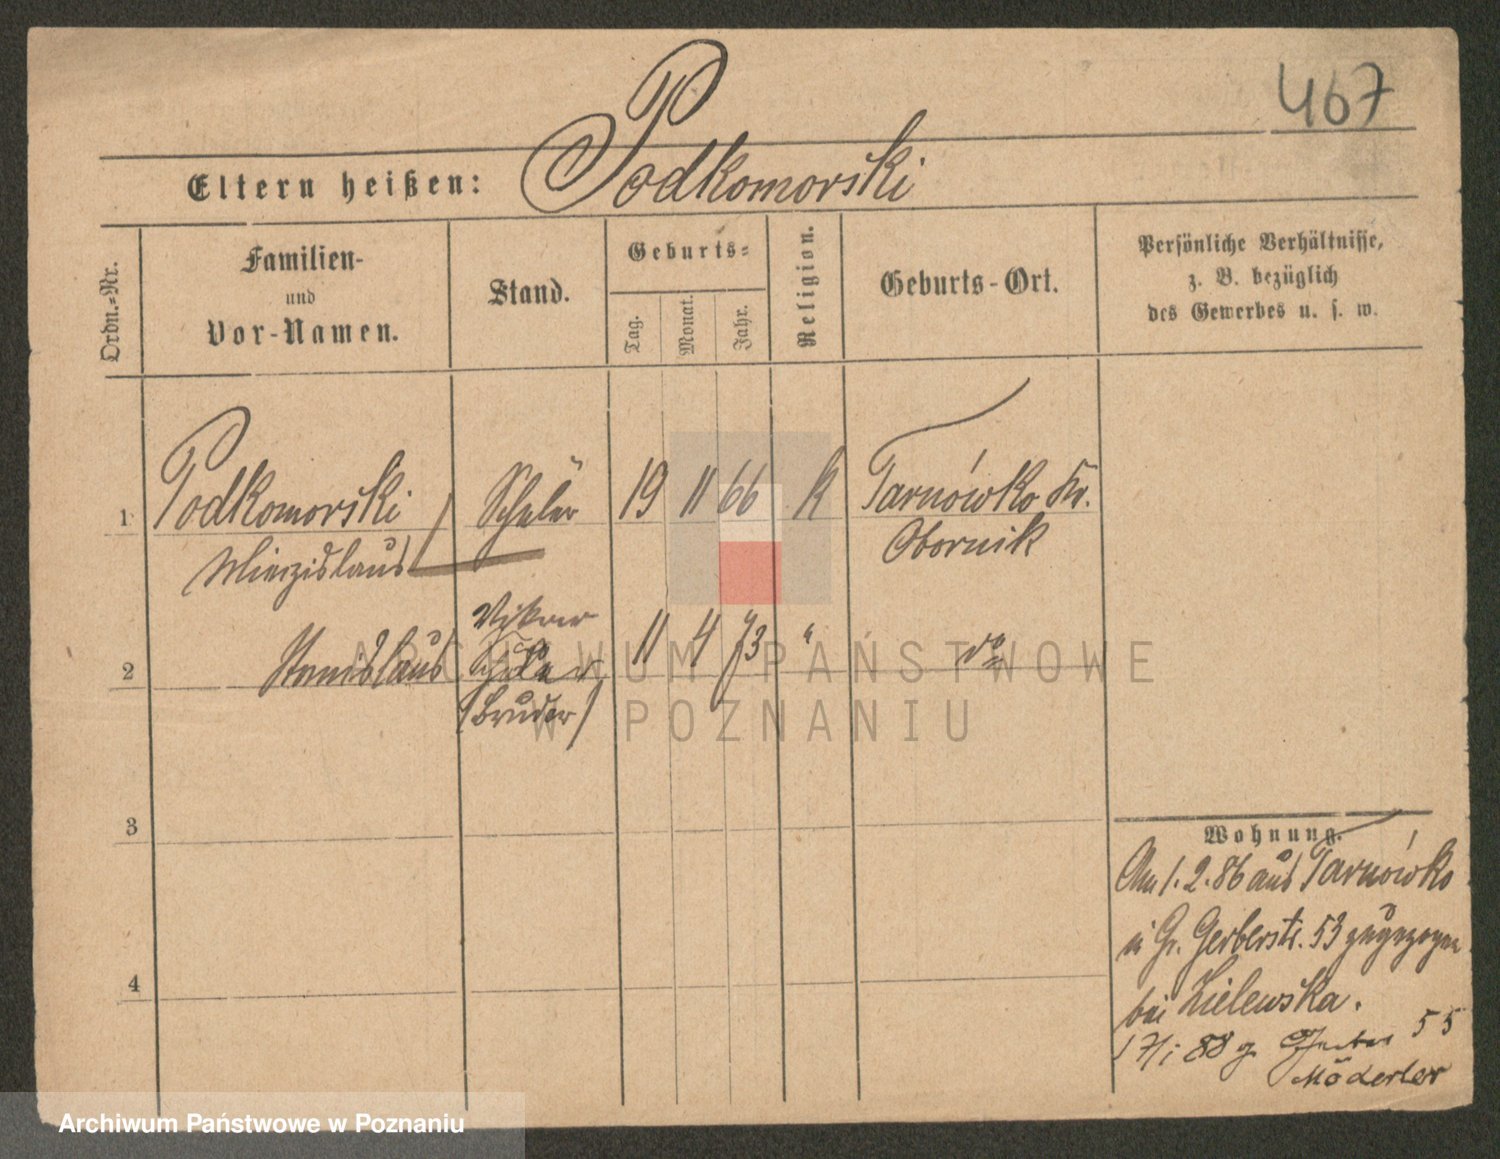 467
Eltern heißen: Podkomorski
Ordn.-Nr.
Familien-
und
Vor-Namen.
Stand.
Geburts-
Tag.
Monat.
Jahr.
Religion.
Geburts-Ort.
Persönliche Verhältnisse,
z. B. bezüglich
des Gewerbes u. s. w.
1 Podkomorski Schüler 19 11 66 K Tarnówko Kr.
Mieczislaus Obornik
2 Stanislaus Schüler 11 4 73 " do
(Bruder)
3
4
Wohnung.
Am 1. 2. 86 aus Tarnówko
n Gr. Gerberstr. 53 zugezogen
bei Zielewska.
17/1 88 g. 55
ARCHIWUM PAŃSTWOWE
W POZNANIU
Archiwum Państwowe w Poznaniu